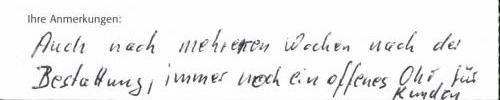 Ihre Anmerkungen:
Auch nach mehreren Wochen nach der
Bestattung, immer noch ein offenes Ohr für
Kunden